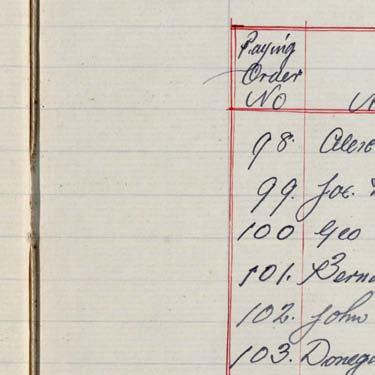 Paying
Order
No
98. Alex
99. Jos.
100 Geo
101. Berna
102. John
103. Donega